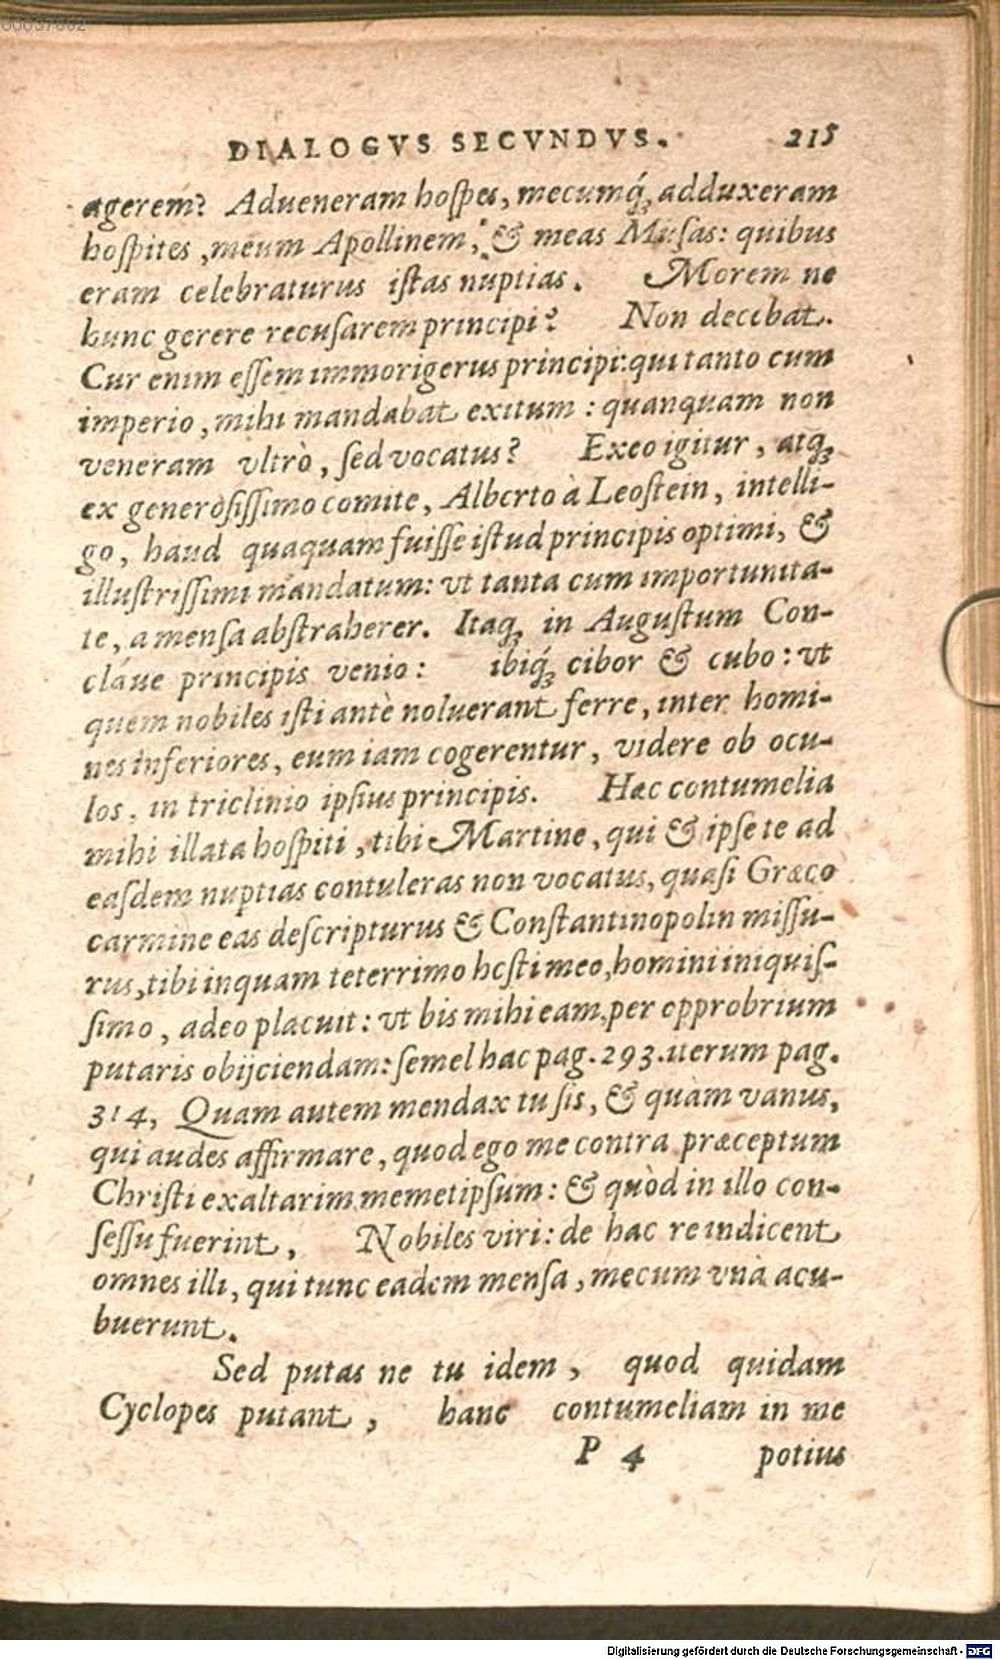 00037802
DIALOGVS SECVNDVS. 215
agerem? Adueneram hospes, mecumq́ꝫ adduxeram
hospites, meum Apollinem, & meas Musas: quibus
eram celebraturus istas nuptias. Morem ne
hunc gerere recusarem principi? Non decebat.
Cur enim essem immorigerus principi: qui tanto cum
imperio, mihi mandabat exitum: quanquam non
veneram vltrò, sed vocatus? Exeo igitur, atqꝫ
ex generosissimo comite, Alberto à Leostein, intelli-
go, haud quaquam fuisse istud principis optimi, &
illustrissimi mandatum: vt tanta cum importunita-
te, a mensa abstraherer. Itaqꝫ in Augustum Con-
claue principis venio: ibiq́ꝫ cibor & cubo: vt
quem nobiles isti antè noluerant ferre, inter homi-
nes inferiores, eum iam cogerentur, videre ob ocu-
los, in triclinio ipsius principis. Hæc contumelia
mihi illata hospiti, tibi Martine, qui & ipse te ad
easdem nuptias contuleras non vocatus, quasi Græco
carmine eas descripturus & Constantinopolin missu-
rus, tibi inquam teterrimo hosti meo, homini iniquis-
simo, adeo placuit: vt bis mihi eam, per opprobrium
putaris obijciendam: semel hac pag. 293. iterum pag.
314, Quam autem mendax tu sis, & quàm vanus,
qui audes affirmare, quod ego me contra præceptum
Christi exaltarim memetipsum: & quòd in illo con-
sessu fuerint, Nobiles viri: de hac re indicent
omnes illi, qui tunc eadem mensa, mecum vnà acu-
buerunt.
Sed putas ne tu idem, quod quidam
Cyclopes putant, hanc contumeliam in me
P 4 potius
Digitalisierung gefördert durch die Deutsche Forschungsgemeinschaft - DFG